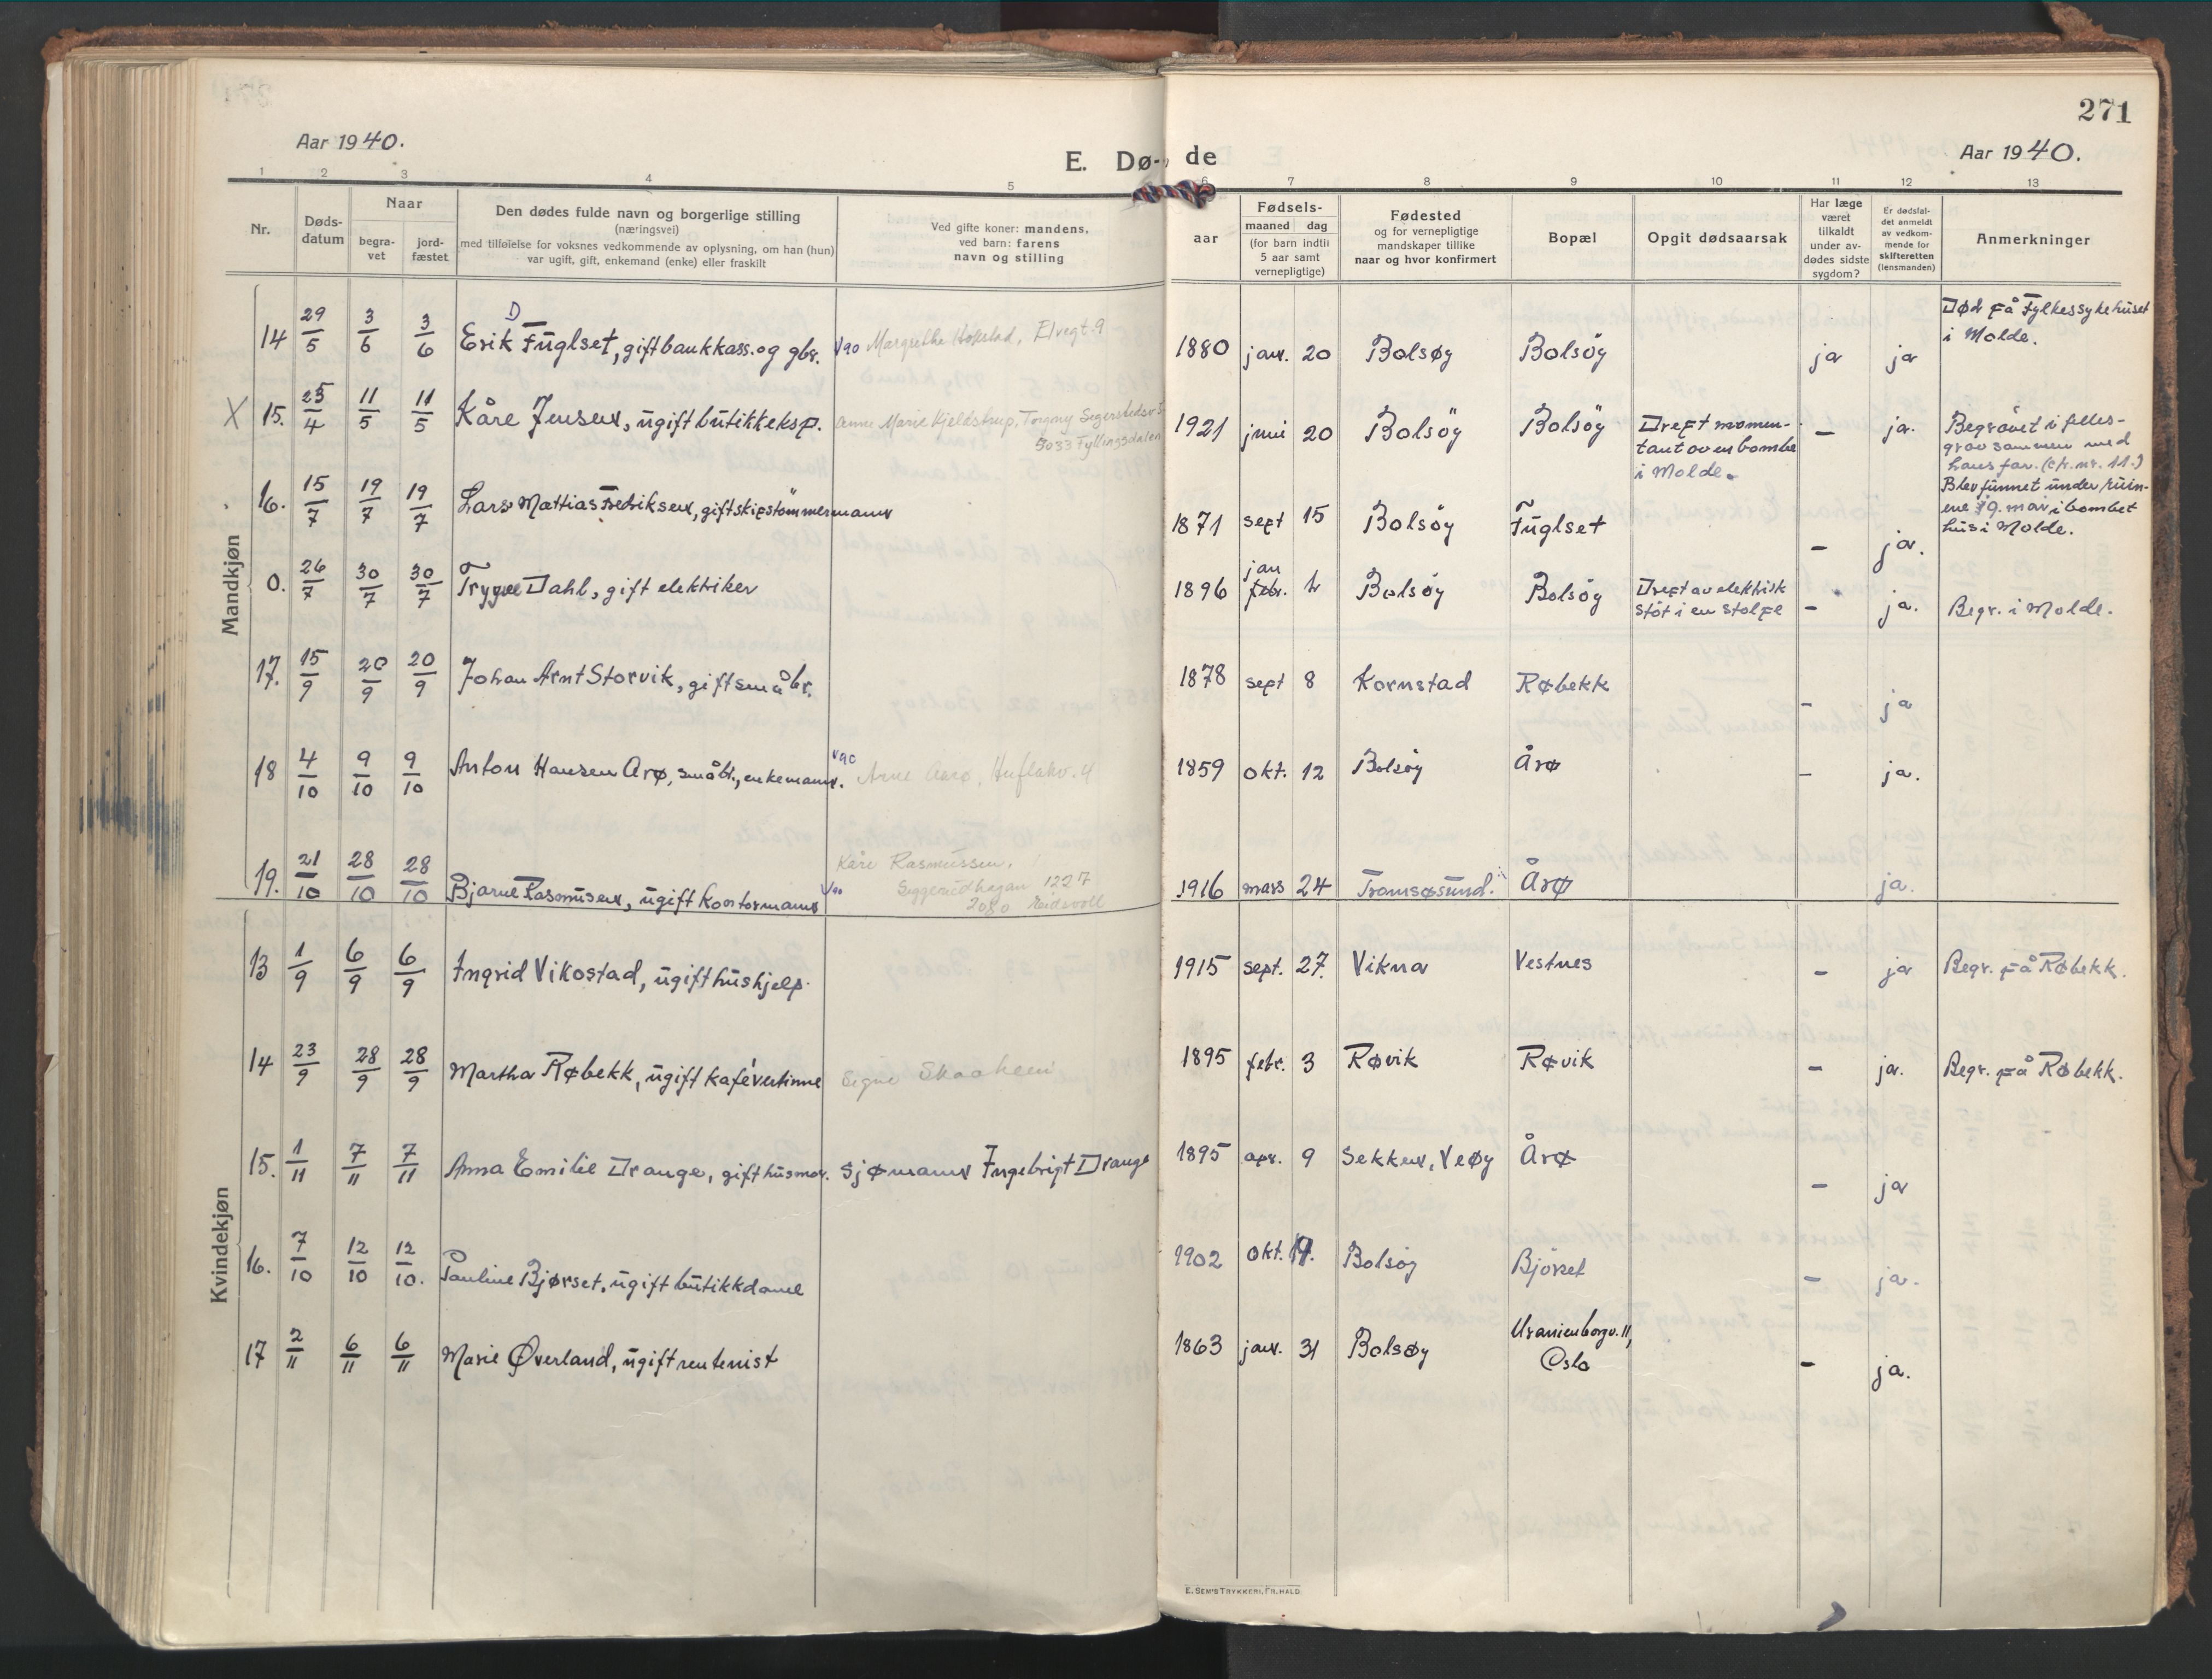 271
Aar 1940.
E. Dø- de
Aar 1940.
1 2 3 4 5 6 7 8 9 10 11 12 13
Nr.
Døds-
datum
Naar
begra-
vet
jord-
fæstet
Den dødes fulde navn og borgerlige stilling
(næringsvei)
med tilføielse for voksnes vedkommende av oplysning, om han (hun)
var ugift, gift, enkemand (enke) eller fraskilt
Ved gifte koner: mandens,
ved barn: farens
navn og stilling
Fødsels-
aar
maaned dag
(for barn indtil
5 aar samt
vernepligtige)
Fødested
og for vernepligtige
mandskaper tillike
naar og hvor konfirmert
Bopæl
Opgit dødsaarsak
Har læge
været
tilkaldt
under av-
dødes sidste
sygdom?
Er dødsfal-
det anmeldt
av vedkom-
mende for
skifteretten
(lensmanden)
Anmerkninger
Mandkjøn
14 29/5 3/6 3/6 Erik D Fuglset, gift bankkass. og gbr. V90 Margrethe Hopstad, Elvegt. 9 1880 jan. 20 Bolsøy Bolsöy ja ja
Død på Fylkessykehuset
i Molde.
X 15. 25/4 11/5 11/5 Kåre Jensen, ugift butikkeksp. Anne Marie Kjeldstrup, Torgny Segerstedsv.
5033 Fyllingsdalen
1921 juni 20 Bolsöy Bolsöy
Drept momen-
tant av en bombe
i Molde.
– ja.
Begravet i felles-
grav sammen med
hans far. (cfr. nr. 11.)
16. 15/7 19/7 19/7 Lars Mattias Fredriksen, gift skipstömmermann 1871 sept 15 Bolsöy Fuglset – ja.
Blev funnet under ruin-
ene 19. mai i bombet
hus i Molde.
0. 26/7 30/7 30/7 Trygve Dahl, gift elektriker 1896 jan
febr. 4 Bolsöy Bolsöy
Drept av elektrisk
stöt i en stolpe
– ja. Begr. i Molde.
17. 15/9 20/9 20/9 Johan Arnt Storvik, gift småbr. 1878 sept 8 Kornstad Røbekk – ja
18 4/10 9/10 9/10 Anton Hansen Arø, småbr., enkemann. V90 Arne Aarø, Huflakv. 4 1859 okt. 12 Bolsöy Årø – ja.
19. 21/10 28/10 28/10 Bjarne Rasmusen, ugift kontormann V90 Kåre Rasmussen,
Syggerudhagan 1227
2080 Eidsvoll
1916 mars 24 Tromsøsund. Årø ja.
Kvindekjøn
13 1/9 6/9 6/9 Ingrid Vikostad, ugift hushjelp. 1915 sept. 27. Vikna Vestnes – ja Begr. på Røbekk.
14 23/9 28/9 28/9 Martha Røbekk, ugift kafévertinne Signe Skaaheim 1895 febr. 3 Røvik Røvik – ja. Begr. på Røbekk.
15. 1/11 7/11 7/11 Anna Emilie Drange, gift husmor. Sjømann Ingebrigt Drange 1895 apr. 9 Sekken, Veøy Årø – ja
16. 7/10 12/10 12/10. Pauline Bjørset, ugift butikkdame 1902 okt. 19. Bolsöy Bjørset – ja.
17 2/11 6/11 6/11 Marie Øverland, ugift rentenist 1863 jan. 31 Bolsøy Uranienborgv. 11,
Oslo
– ja.
E. SEM'S TRYKKERI, FR.HALD